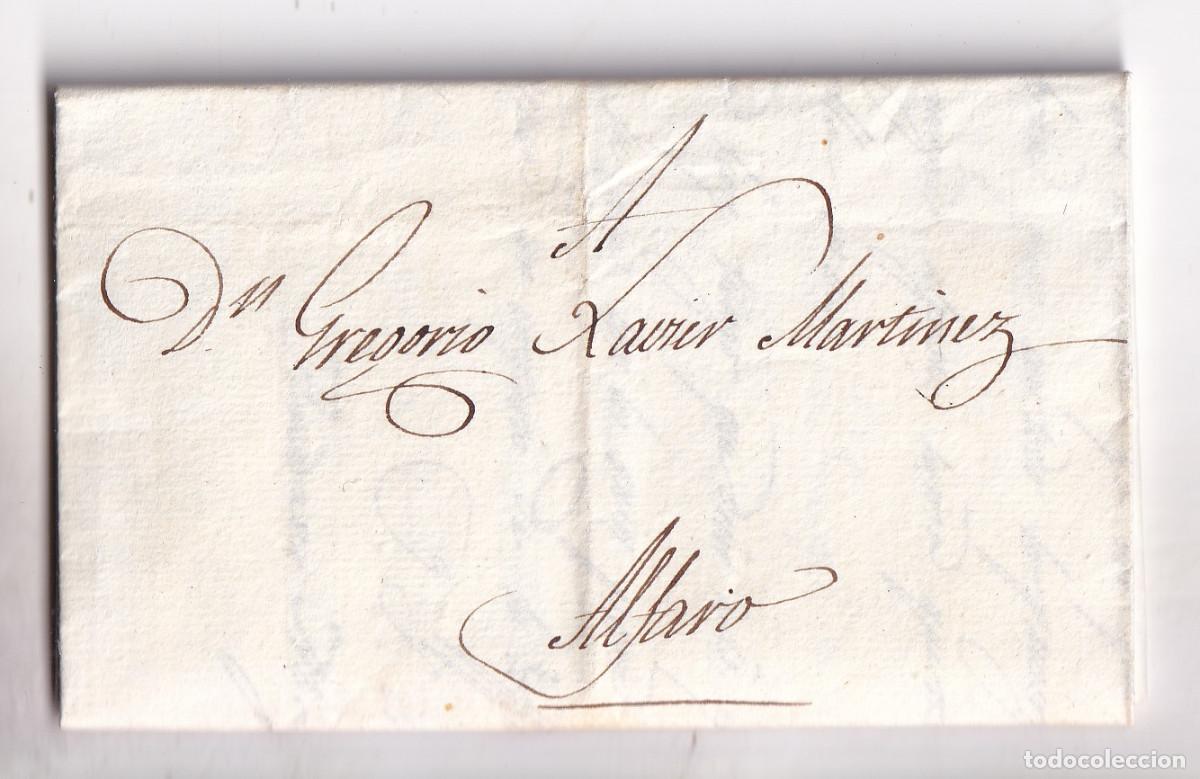 A
Dn. Gregorio Xavier Martinez
Alfaro
todocoleccion